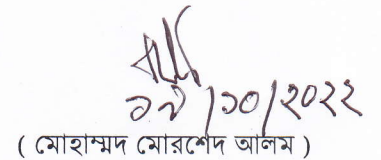 /১০/২০২২
( মোহাম্মদ মোরশেদ আলম )